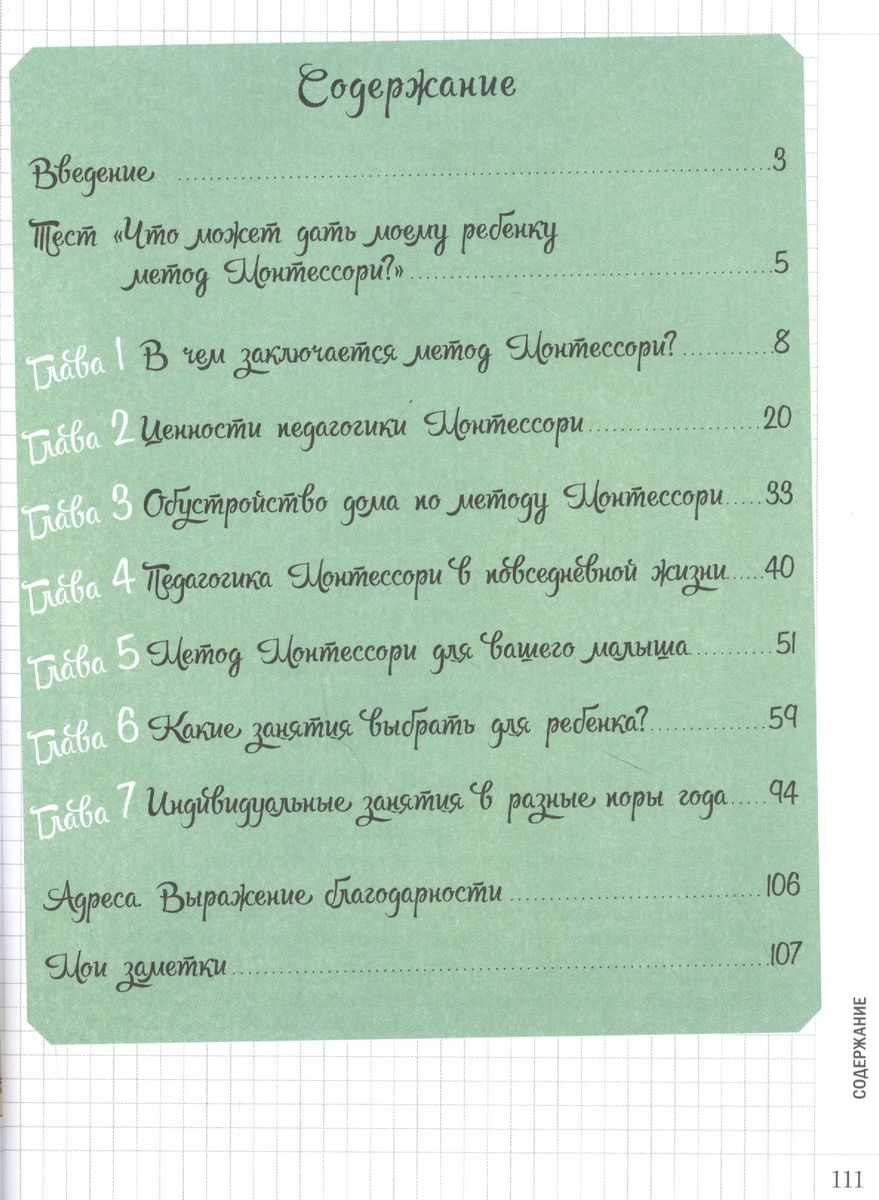 Содержание
Введение ........ 3
Тест «Что может дать моему ребенку
метод Монтессори?» ........ 5
Глава 1 В чем заключается метод Монтессори? ........ 8
Глава 2 Ценности педагогики Монтессори ........ 20
Глава 3 Обустройство дома по методу Монтессори ..... 33
Глава 4 Педагогика Монтессори в повседневной жизни ..... 40
Глава 5 Метод Монтессори для вашего малыша ........ 51
Глава 6 Какие занятия выбрать для ребенка? ........ 59
Глава 7 Индивидуальные занятия в разные поры года ..... 94
Адреса. Выражение благодарности ........ 106
Мои заметки ........ 107
СОДЕРЖАНИЕ
111